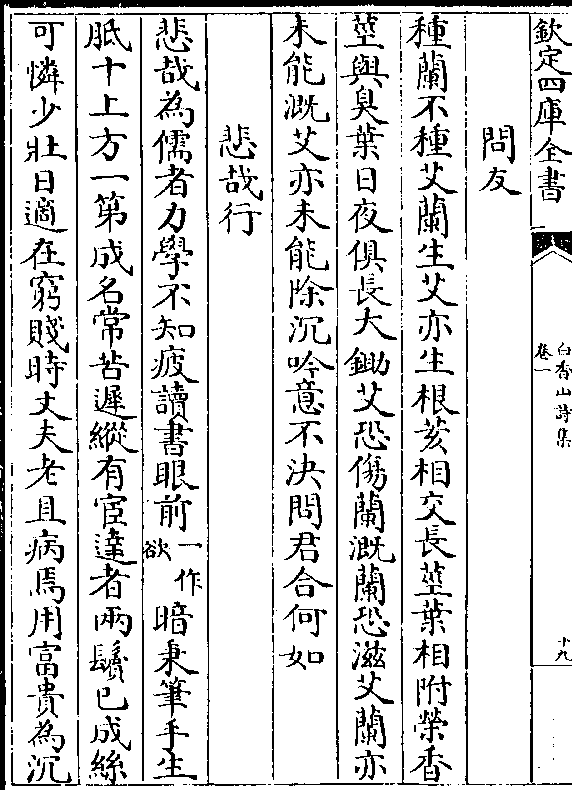 欽定四庫全書
白香山詩集
卷一
十九
問友
種蘭不種艾蘭生艾亦生根荄相交長莖葉相附榮香
莖與臭葉日夜俱長大鋤艾恐傷蘭溉蘭恐滋艾蘭亦
未能溉艾亦未能除沉吟意不決問君合何如
悲哉行
悲哉為儒者力學不知疲讀書眼前一作欲暗秉筆手生
胝十上方一第成名常苦遲縱有宦達者兩鬢已成絲
可憐少壯日適在窮賤時丈夫老且病焉用富貴為沉